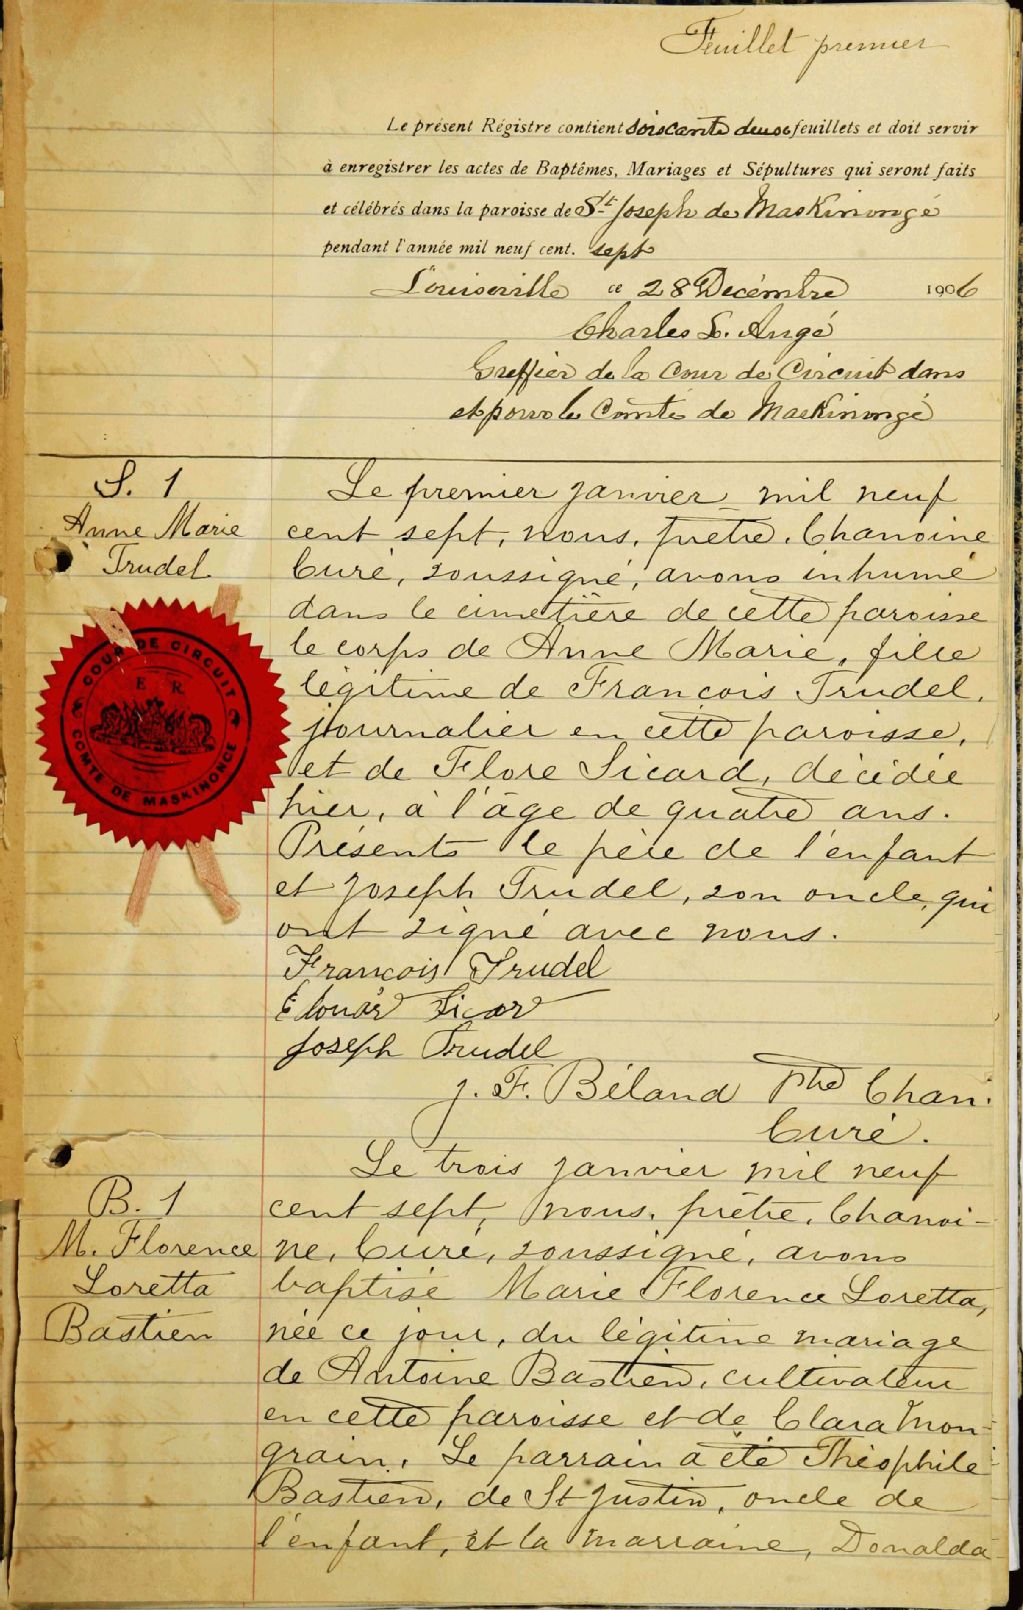 Feuillet premier
Le présent Régistre contient soixante deux feuillets et doit servir
à enregistrer les actes de Baptêmes, Mariages et Sépultures qui seront faits
et célébrés dans la paroisse de St Joseph de Maskinongé
pendant l'année mil neuf cent. sept
Louiseville ce 28 Décembre 1906
Charles L. Angé
Greffier de la Cour de Circuit dans
et pour le Comté de Maskinongé
S. 1
Anne Marie
Trudel
COUR DE CIRCUIT
E R
COMTÉ DE MASKINONGE
Le premier janvier mil neuf
cent sept, nous, prêtre, Chanoine
Curé, soussigné, avons inhumé
dans le cimetière de cette paroisse
le corps de Anne Marie, fille
légitime de François Trudel,
journalier en cette paroisse,
et de Flore Sicard, décédée
hier, à l'âge de quatre ans.
Présents le père de l'enfant
et Joseph Trudel, son oncle, qui
ont signé avec nous.
François Trudel
Sicar
Joseph Trudel
J. F. Béland Ptre Chan.
Curé.
B. 1
M. Florence
Loretta
Bastien
Le trois janvier mil neuf
cent sept, nous, prêtre, Chanoi-
ne, Curé, soussigné, avons
baptisé Marie Florence Loretta,
née ce jour, du légitime mariage
de Antoine Bastien, cultivateur
en cette paroisse et de Clara Mon-
grain. Le parrain a été Théophile
Bastien, de St Justin, oncle de
l'enfant, et la marraine, Donalda